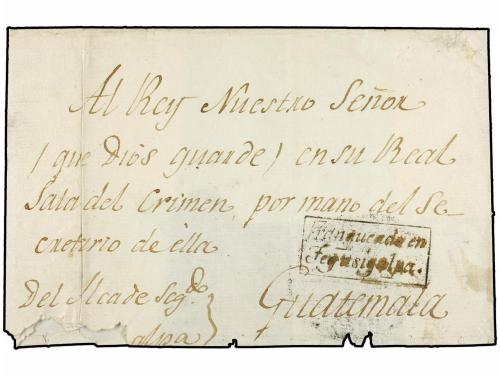 Al Rey Nuestro Señor
(que Dios guarde) en su Real
Sala del Crimen, por mano del Se-
cretario de ella
Franqueado en
Tegusigalpa.
Del Alcade Seg.do
alpa
Guatemala